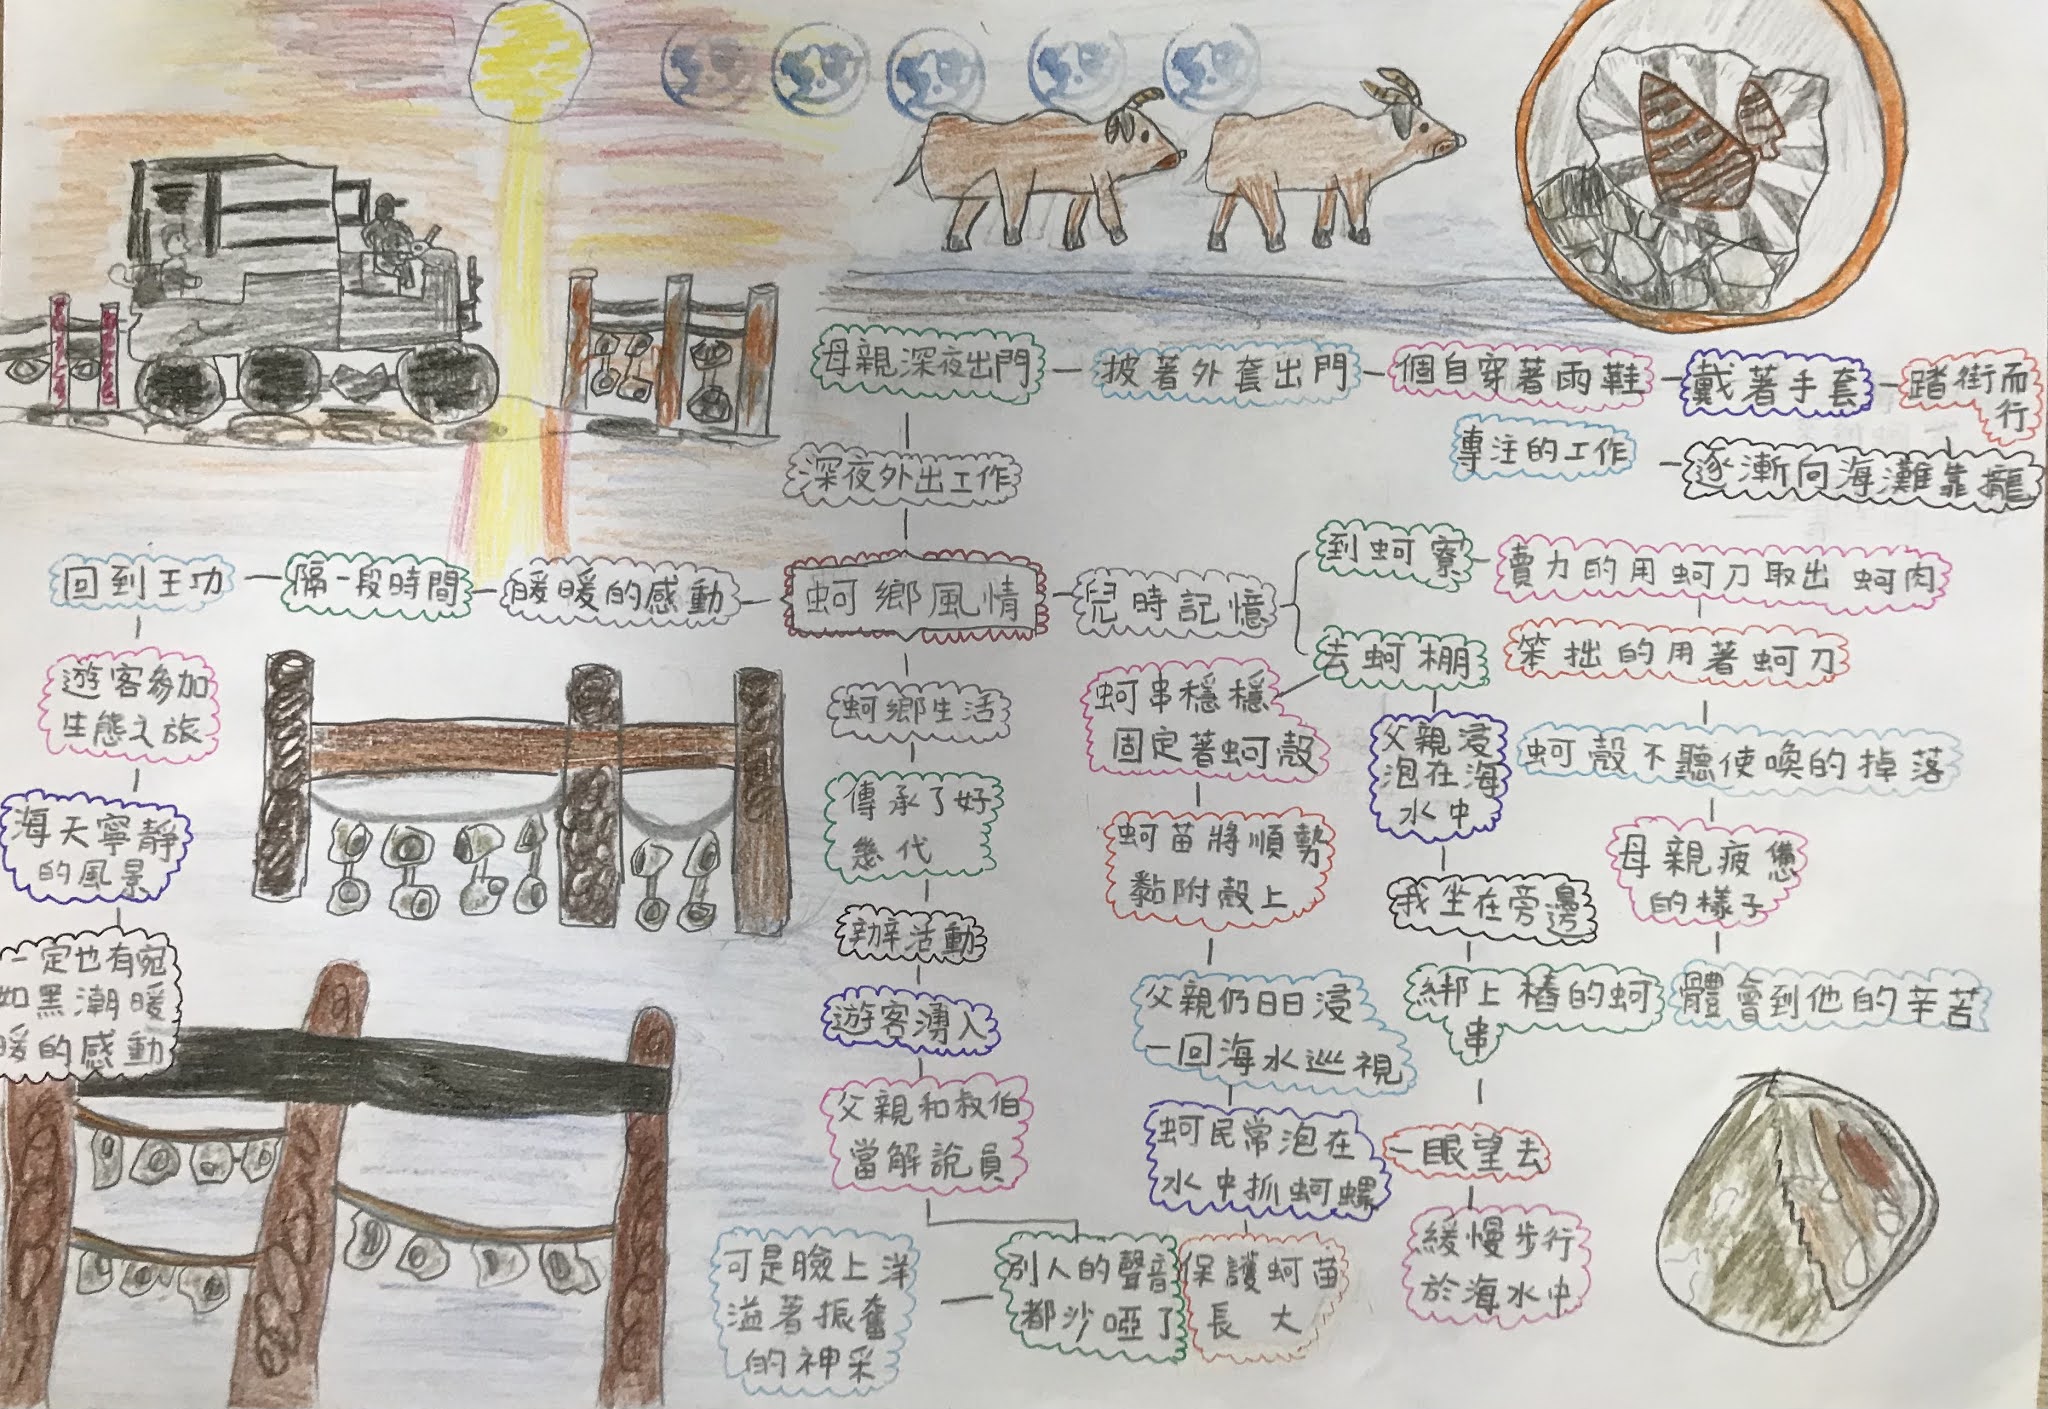 母親深夜出門
披著外套出門
個自穿著雨鞋
戴著手套
踏街而
行
逐漸向海灘靠攏
專注的工作
深夜外出工作
蚵鄉風情
暖暖的感動
隔一段時間
回到王功
遊客參加
生態之旅
海天寧靜
的風景
一定也有宛
如黑潮暖
暖的感動
兒時記憶
到蚵寮
賣力的用蚵刀取出蚵肉
笨拙的用著蚵刀
蚵殼不聽使喚的掉落
母親疲憊
的樣子
體會到他的辛苦
去蚵棚
蚵串穩穩
固定著蚵殼
蚵苗將順勢
黏附殼上
父親仍日日浸
一回海水巡視
蚵民常泡在
水中抓蚵螺
保護蚵苗
長大
父親浸
泡在海
水中
我坐在旁邊
綁上樁的蚵
串
一眼望去
緩慢步行
於海水中
蚵鄉生活
傳承了好
幾代
辦活動
遊客湧入
父親和叔伯
當解說員
別人的聲音
都沙啞了
可是臉上洋
溢著振奮
的神采